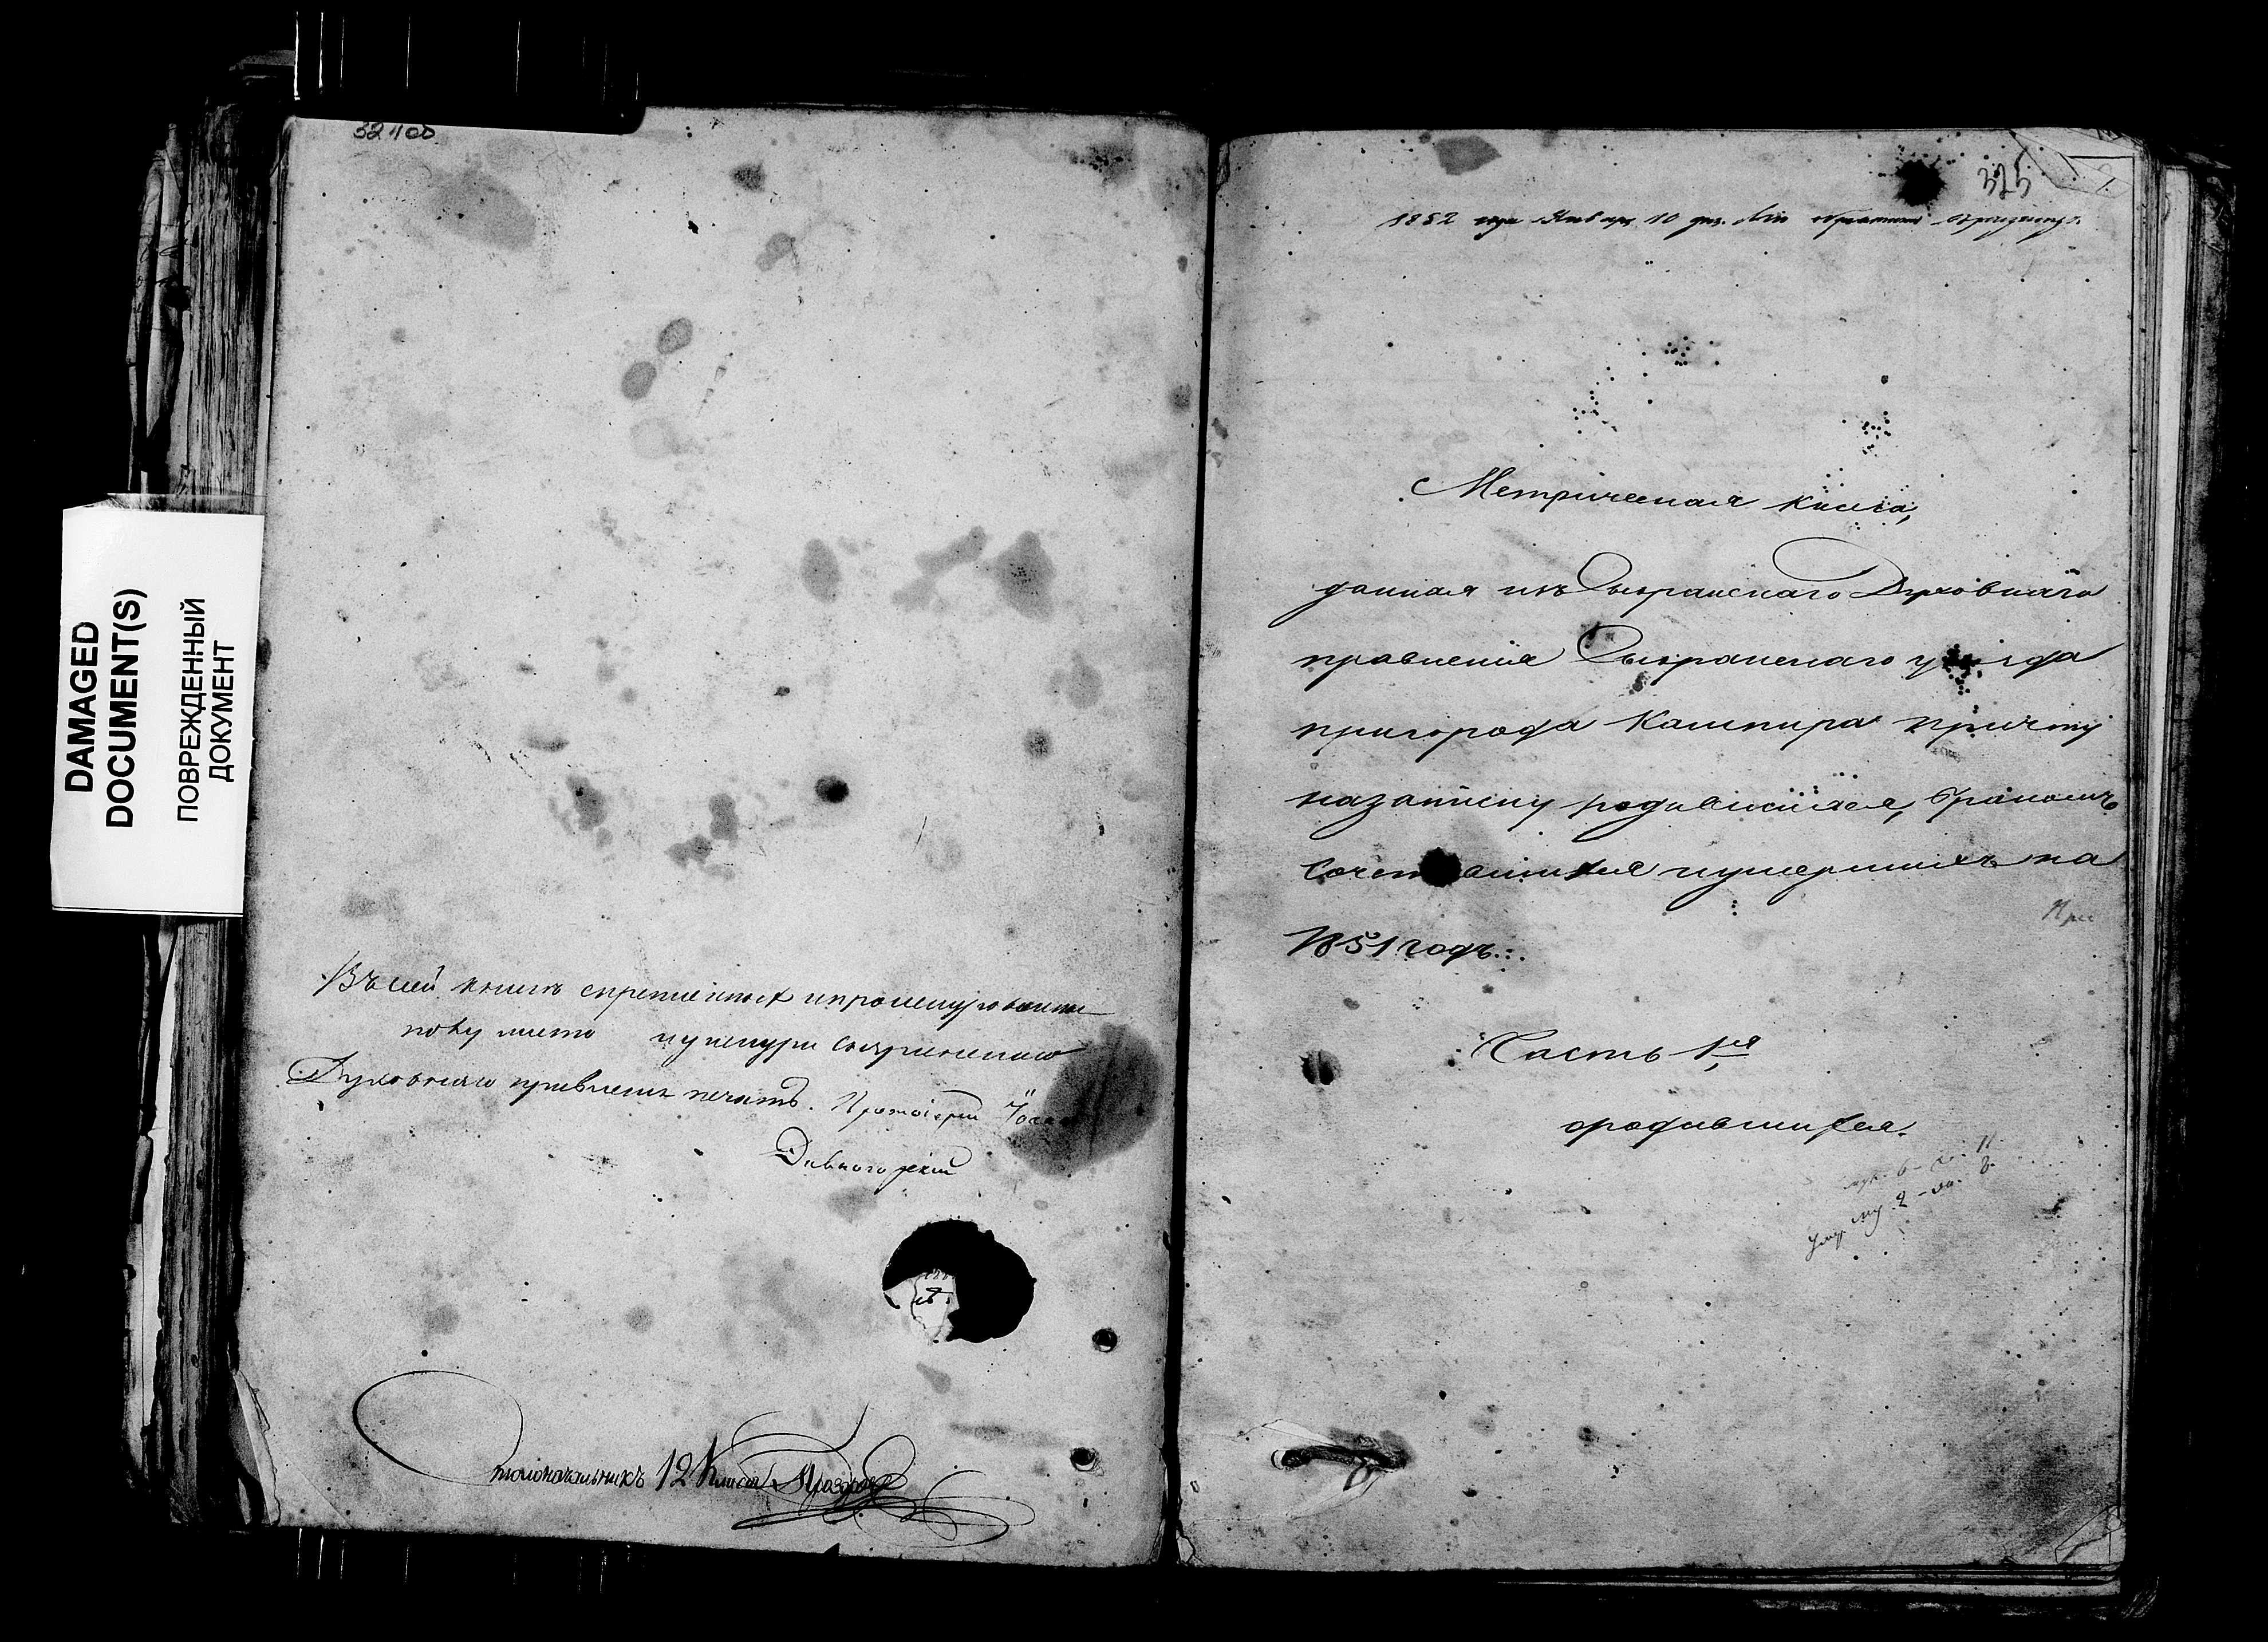 DAMAGED
DOCUMENT(S)
ПОВРЕЖДЕННЫЙ
ДОКУМЕНТ
32 100
Въ сей книгѣ скрепленныхъ и прошнурованныхъ
листо и у шнура Сызранскаго
Духовнаго правленія печать. Протоіерей
Дивногорскій
столоначальникъ 12 Класса
375
1852 года Января 10 дня
Метрическая книга,
данная изъ Сызранскаго Духовнаго
правленія Сызранскаго уѣзда
пригорода Кашпира причту
на записку родившихся, бракомъ
сочетавшихся и умершихъ на
1851 годъ.
При
Часть 1я
о родившихся.